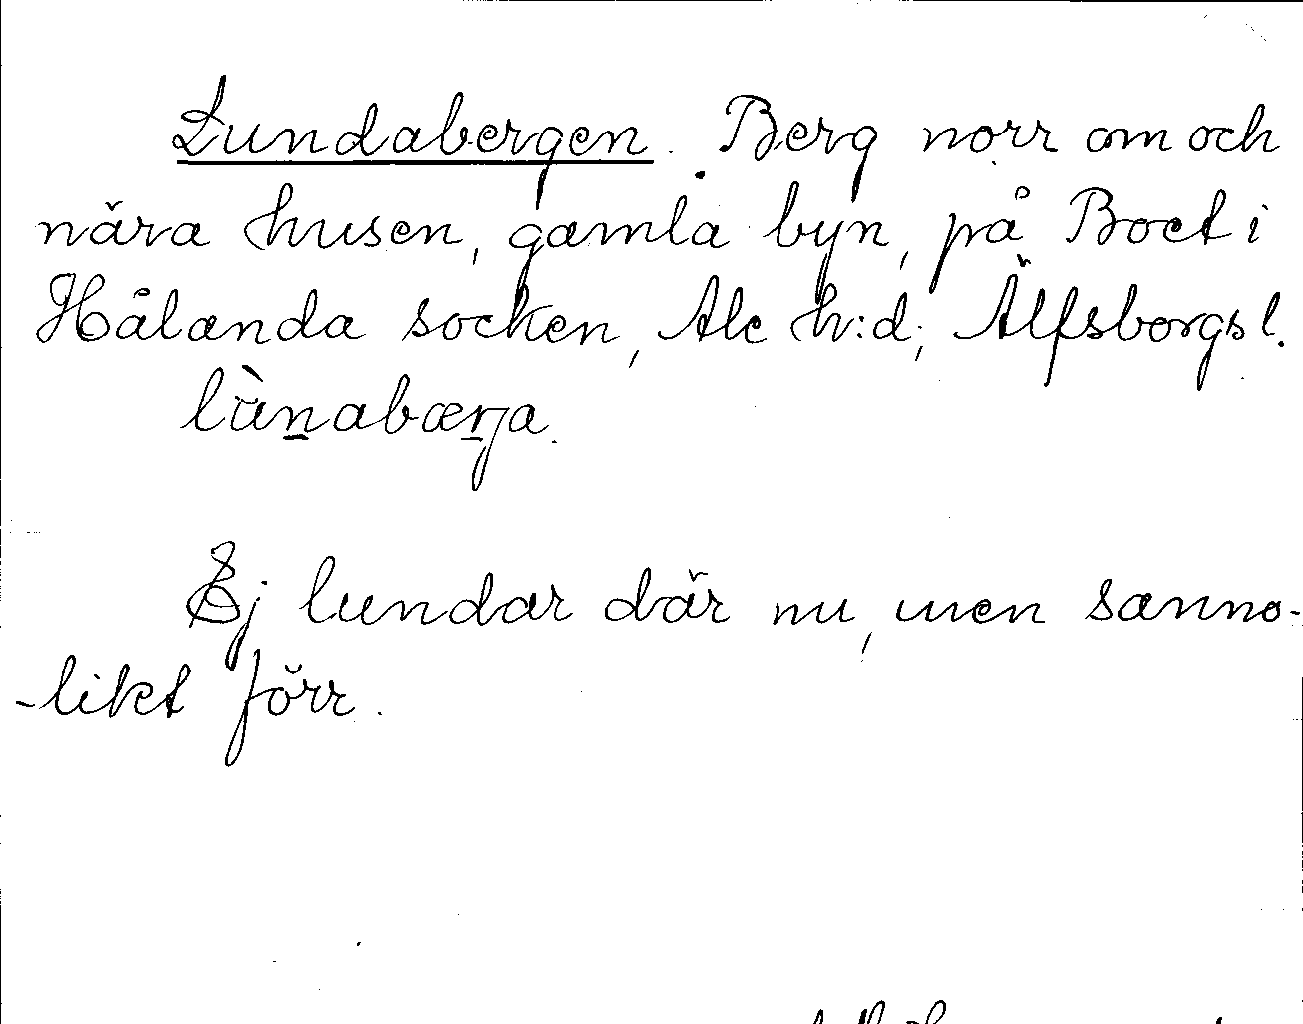 Lundabergen. Berg norr om och
nära husen, gamla byn, på Boet i
Hålanda socken, Ale h:d, Älfsborgs l.
lùn̠abær̠ja.
Ej lundar där nu, men sanno-
-likt förr.